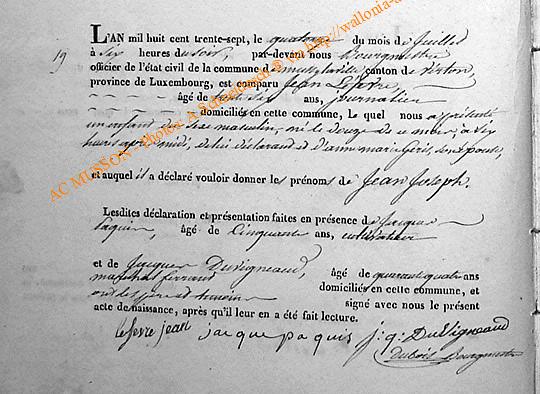 L'AN mil huit cent trente-sept, le quatorze du mois de Juillet
19
à six heures du soir, par-devant nous Bourgmestre
officier de l'état civil de la commune de canton de Virton,
province de Luxembourg, est comparu Jean Lefevre
âgé de ans, journalier
domiciliés en cette commune, Le quel nous a présenté
un enfant du sexe masculin, né le douze de ce mois, à dix
heures après midi, de lui déclarant et d'anne marie son épouse,
et auquel il a déclaré vouloir donner les prénoms de Jean Joseph.
Lesdites déclaration et présentation faites en présence de Jacque
Paquis, âgé de Cinquante ans, cultivateur
et de Jacques Duvigneaud, âgé de quarante quatre ans
marechal ferrant domiciliés en cette commune, et
ont des père et temoins signé avec nous le présent
acte de naissance, après qu'il leur en a été fait lecture.
lefevre jean jacque paquis j: q: DuVigneaud
Dubois Bourgmestre
AC MUSSON - Photos: A Schreurbach @ via http://wallonia-a